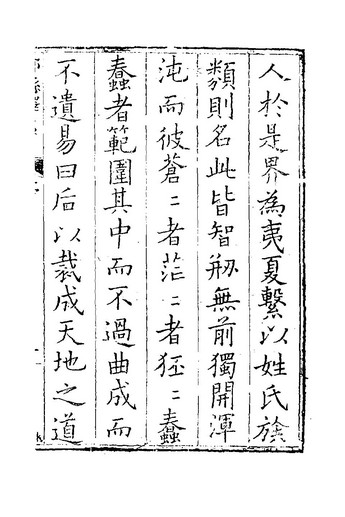 人於是界為夷夏繫以姓氏族
類則名此皆智剏無前獨開渾
沌而彼蒼〻者茫〻者狉〻蠢
蠢者範圍其中而不過曲成而
不遺易曰后以裁成天地之道